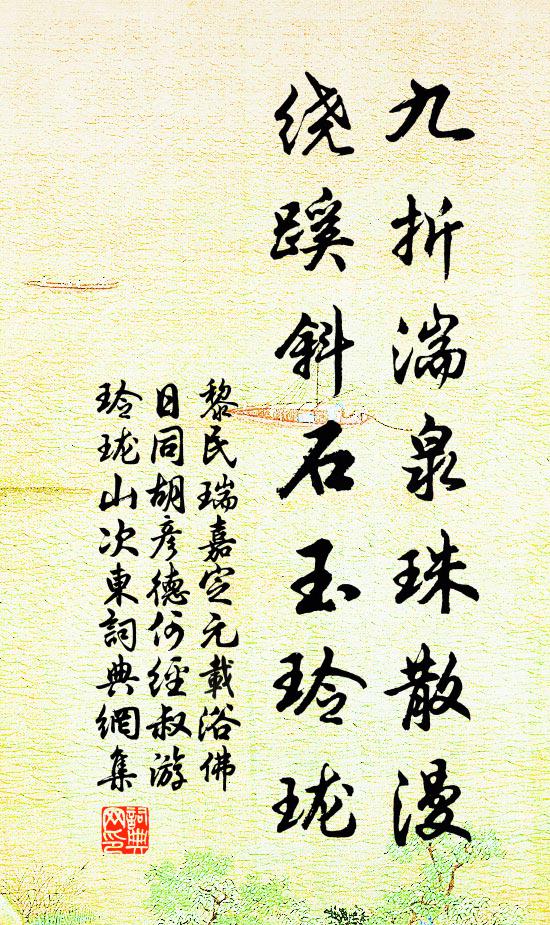 九折湍泉珠散漫
绕蹊斜石玉玲珑
黎民瑞嘉定元載浴佛
日同胡彦德何經叔游
玲珑山次東詞典網集
詞典
网印